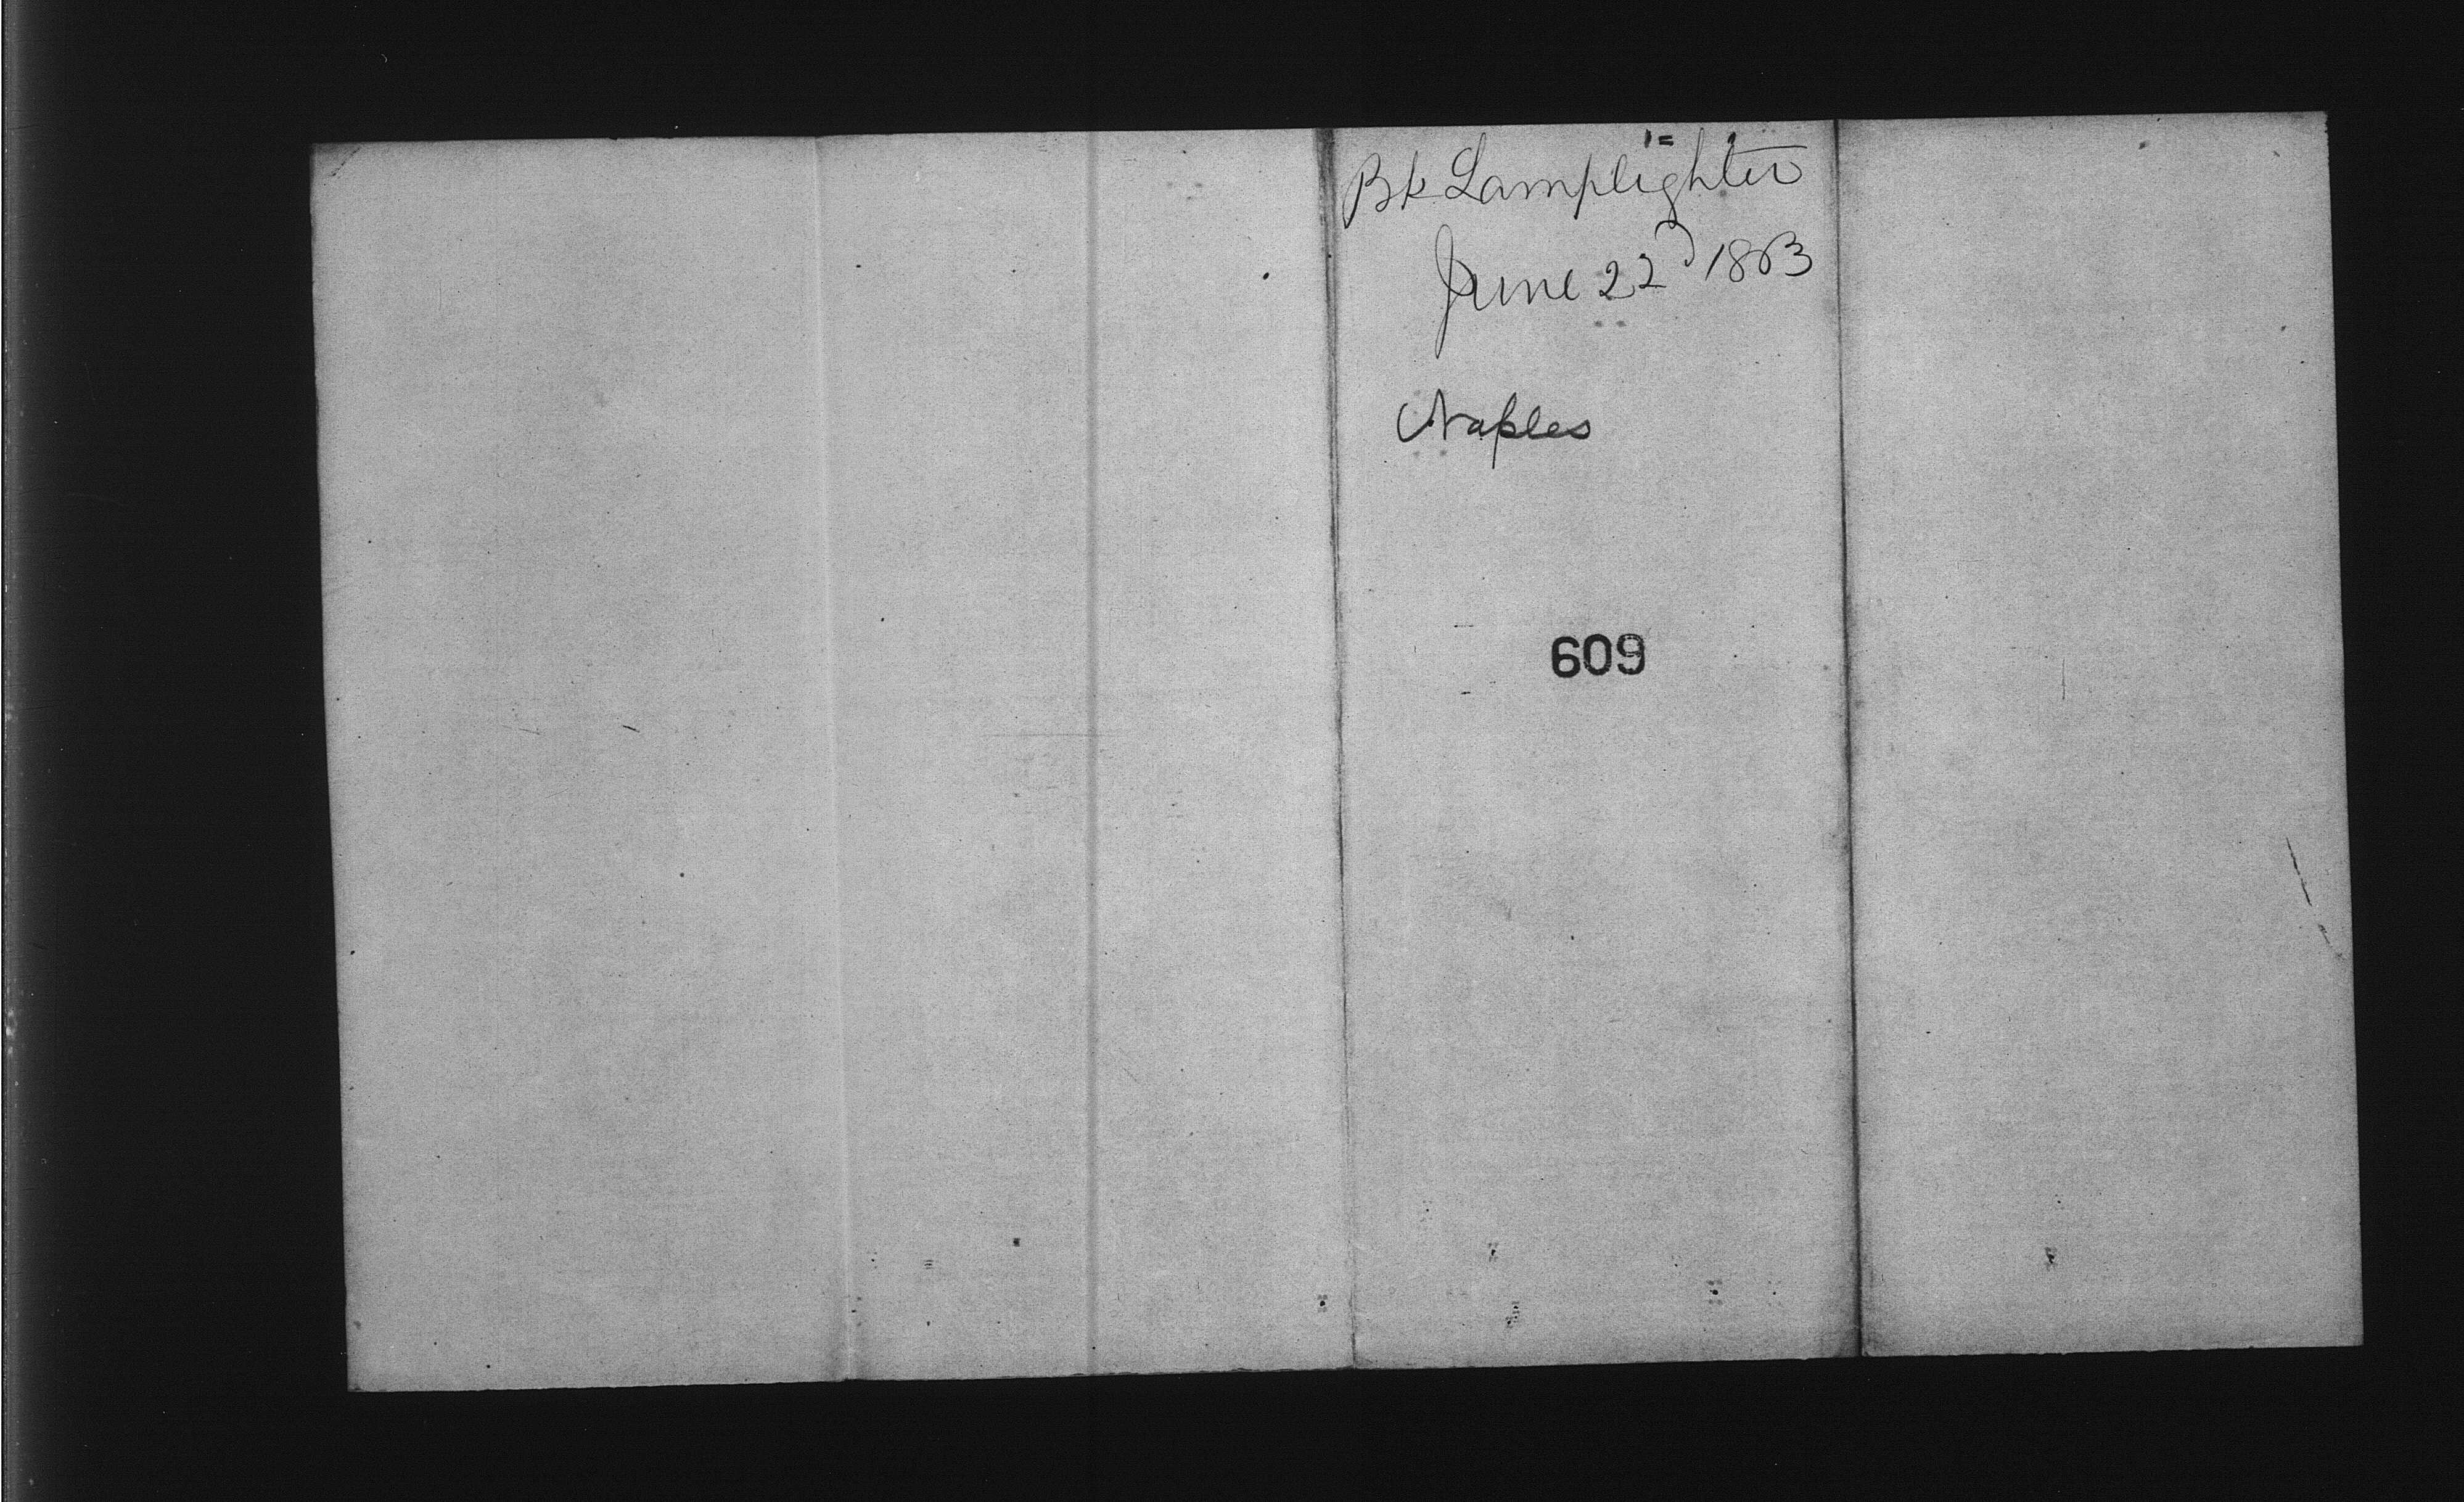 Bk Lamplighter
June 22d 1863
Naples
609